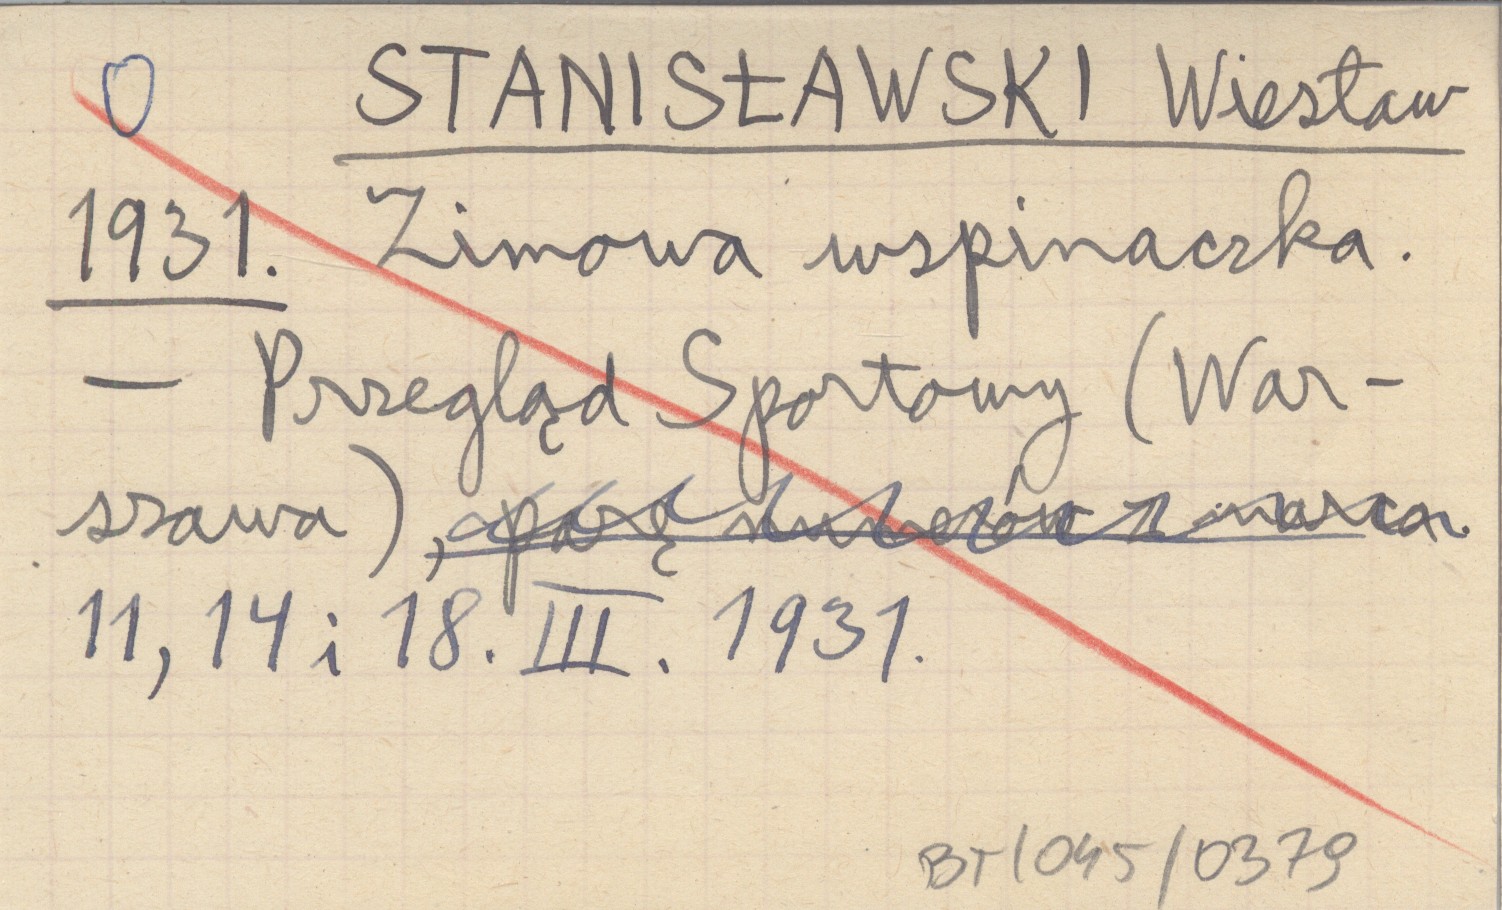 0 STANISŁAWSKI Wiesław
1931. Zimowa wspinaczka.
— Przegląd Sportowy (War-
szawa), parę numerów z marca.
11, 14 i 18. III. 1931.
BT/045/0379